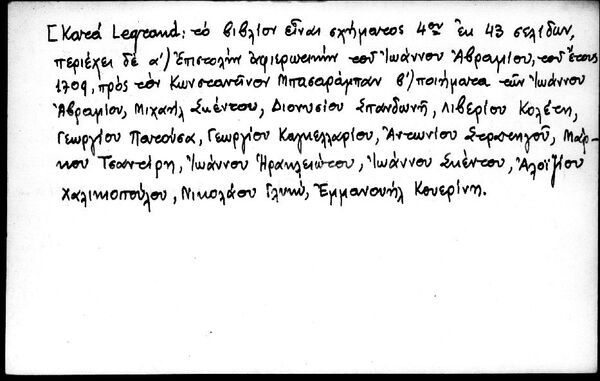 [Κατά Legrand: τό βιβλίον εἶναι σχήματος 4ον ἐκ 43 σελίδων,
περιέχει δέ α') Ἐπιστολήν ἀφιερωτικήν τοῦ Ἰωάννου Ἀβραμίου, τοῦ ἔτους
1709, πρός τόν Κωνσταντῖνον Μπασαράμπαν β') ποιήματα τῶν Ἰωάννου
Ἀβραμίου, Μιχαήλ Σκένδου, Διονυσίου Σπανδωνῆ, Λιβερίου Κολέτη,
Γεωργίου Πατούσα, Γεωργίου Καγκελλαρίου, Ἀντωνίου Στρατηγοῦ, Μάρ-
κου Τσαντίρη, Ἰωάννου Ἡρακλειώτου, Ἰωάννου Σκένδου, Ἀλοϊζίου
Χαλικιοπούλου, Νικολάου Γλυκύ, Ἐμμανουήλ Κουερίνη.